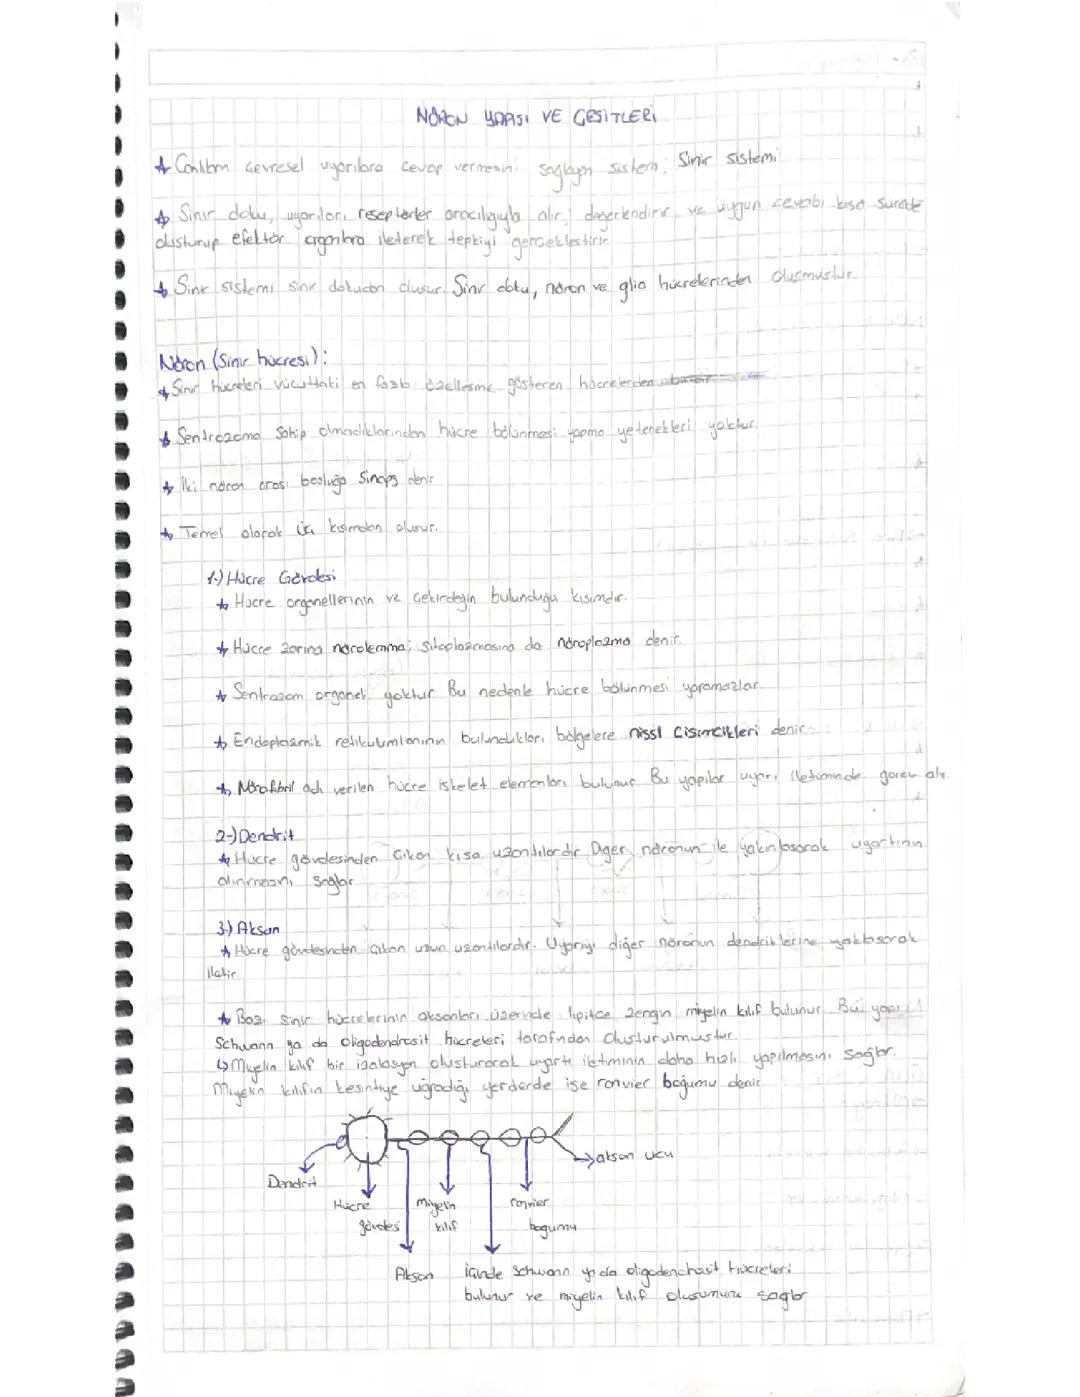 NÖRON YAPISI VE ÇEŞİTLERİ
Canlıların çevresel uyarılara cevap vermesini sağlayan sistem; Sinir sistemi
Sinir doku, uyarıları reseptörler aracılığıyla alır; değerlendirir ve uygun cevabı kısa sürede
oluşturup efektör organlara ileterek tepkiyi gerçekleştirir.
Sinir sistemi sinir dokudan oluşur. Sinir doku, nöron ve glia hücrelerinden oluşmuştur.
Nöron (Sinir hücresi):
Sinir hücreleri vücuttaki en fazla özelleşme gösteren hücrelerden
Sentrozoma sahip olmadıklarından hücre bölünmesi yapma yetenekleri yoktur.
İki nöron arası boşluğa Sinaps denir
Temel olarak üç kısımdan oluşur.
1-) Hücre Gövdesi
Hücre organellerinin ve çekirdeğin bulunduğu kısımdır.
Hücre zarına nörolemma; sitoplazmasına da nöroplazma denir.
Sentrozom organeli yoktur Bu nedenle hücre bölünmesi yapamazlar.
Endoplazmik retikulumlarının bulundukları bölgelere nissl cisimcikleri denir.
Nörofibril adı verilen hücre iskelet elemanları bulunur. Bu yapılar uyarı iletiminde görev alır.
2-) Dendrit
Hücre gövdesinden çıkan kısa uzantılardır Diğer nöronun ile yakınlaşarak uyartının
alınmasını sağlar
3-) Akson
Hücre gövdesinden çıkan uzun uzantılardır. Uyarıyı diğer nöronun dendriklerine yaklaşarak
iletir
Bazı sinir hücrelerinin aksonları üzerinde lipitce zengin miyelin kılıf bulunur Bu yapı
Schwann ya da oligodendrosit hücreleri tarafından oluşturulmuştur.
↳ Miyelin kılıf bir izolasyon oluşturarak uyartı iletiminin daha hızlı yapılmasını sağlar.
Miyelin kılıfın kesintiye uğradığı yerlerde ise ranvier boğumu denir
akson ucu
Dendrit
Hücre
gövdesi
miyelin
kılıf
ranvier
boğumu
Akson
içinde schwann ya da oligodendrosit hücreleri
bulunur ve miyelin kılıf oluşumunu sağlar